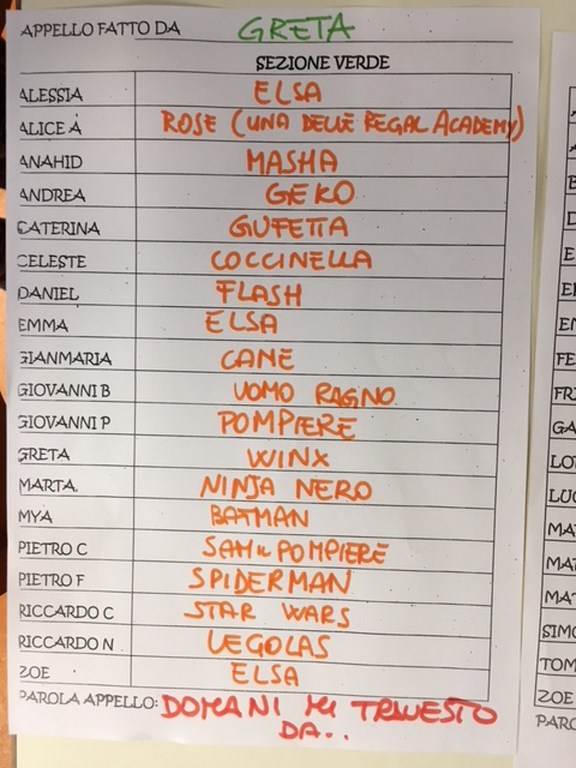 APPELLO FATTO DA GRETA
SEZIONE VERDE
ALESSIA ELSA
ALICE A ROSE (UNA DELLE REGAL ACADEMY)
ANAHID MASHA
ANDREA GEKO
CATERINA GUFETTA
CELESTE COCCINELLA
DANIEL FLASH
EMMA ELSA
GIANMARIA CANE
GIOVANNI B UOMO RAGNO
GIOVANNI P POMPIERE
GRETA WINX
MARTA NINJA NERO
MYA BATMAN
PIETRO C SAM IL POMPIERE
PIETRO F SPIDERMAN
RICCARDO C STAR WARS
RICCARDO N LEGOLAS
ZOE ELSA
PAROLA APPELLO: DOMANI MI TRAVESTO
DA..
ZOE